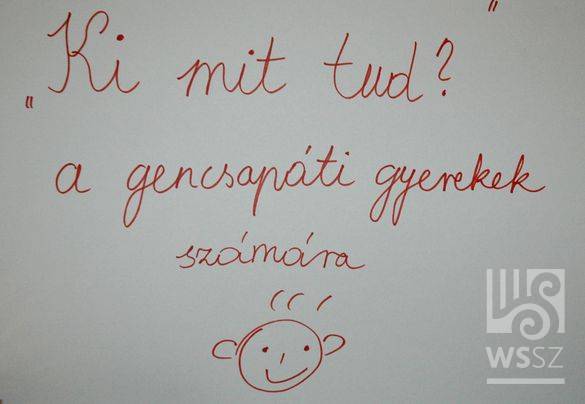 „Ki mit tud?”
a gencsapáti gyerekek
számára
WSSZ